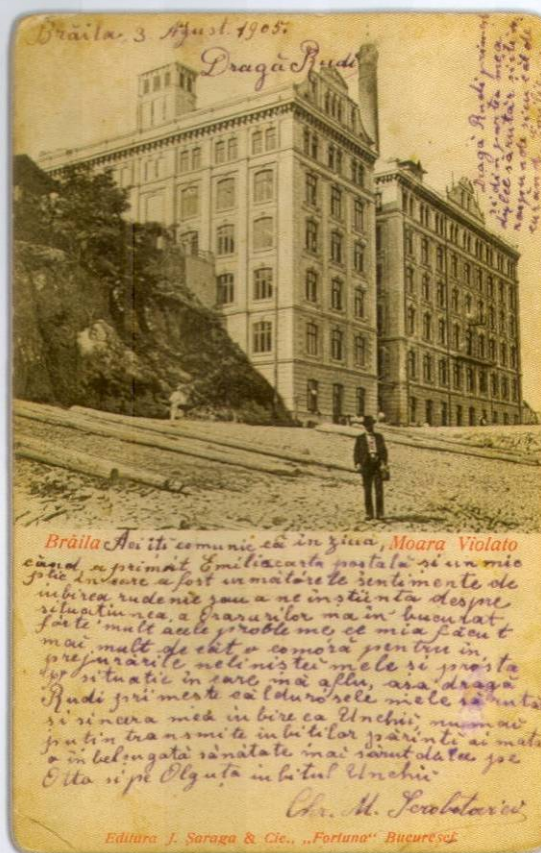 Brăila 3 August 1905.
Dragă Rudi
Dragă Rudi primește
și din partea mea
dulce sărutări și
răspunde și eu cât de
curând
Brăila Moara Violato
Aci iti comunic că in ziua,
când a primit Emilia carta postală si un mic
plic in care a fost următorele sentimente de
iubirea rudenie sau a ne instiinta despre
situatiunea, a Orasurilor ma in bucurat
forte mult acele probleme ce mia făcut
mai mult de cât o comoră pentru in
prejurările nelinistei mele si prosta
situatie in care mă aflu, asa dragă
Rudi primeste căldurosele mele sărutări
si sincera mea iubire ca Unchiu, nu mai
putin transmite iubitilor părinti ai matale
o in belsugată sănătate mai sărut dulce pe
Otto si pe Olguta iubitul Unchiu
Chr. M.
Editura J. Saraga & Cie., „Fortuna" București.